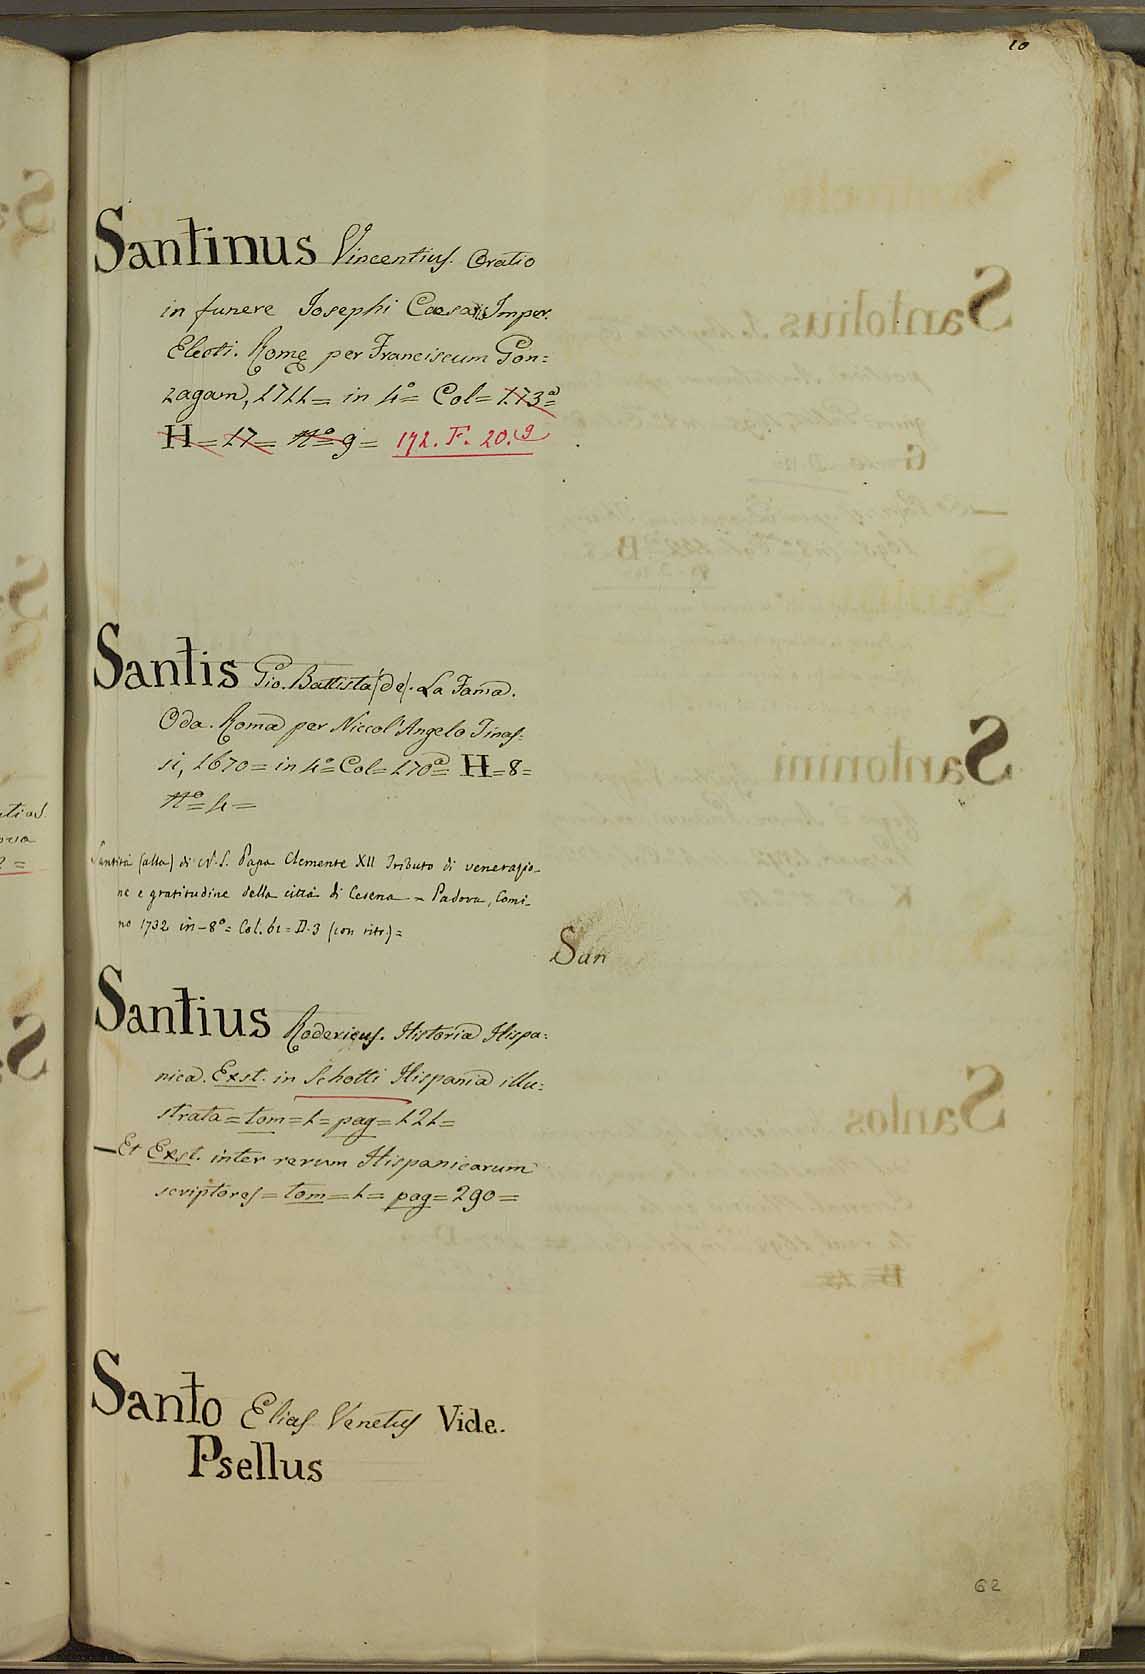 10
Santinus Vincentius. Oratio
in funere Josephi Caesaris Imper.
Electi. Rome per Franciscum Gon=
zagam, 1711= in 4°= Col= 173ª=
H= 17= Nº= 9= 172. F. 20.9
Santis Gio. Battista (de). La Fama.
Oda. Roma per Niccol'Angelo Tinas=
si, 1670= in 4°= Col= 170ª= H=8=
Nº= 4=
Santità (alla) di N. S. Papa Clemente XII Tributo di venerazio-
ne e gratitudine della città di Cesena = Padova, Comi-
no 1732 in-8°= Col. 61= D.3 (con ritr)=
San
Santius Rodericus. Historia Hispa=
nica. Exst. in Schotti Hispania illu=
strata= tom=1= pag=121=
—Et Exst. inter rerum Hispanicarum
scriptores= tom=1= pag=290=
Santo Elias Venetus Vide.
Psellus
62